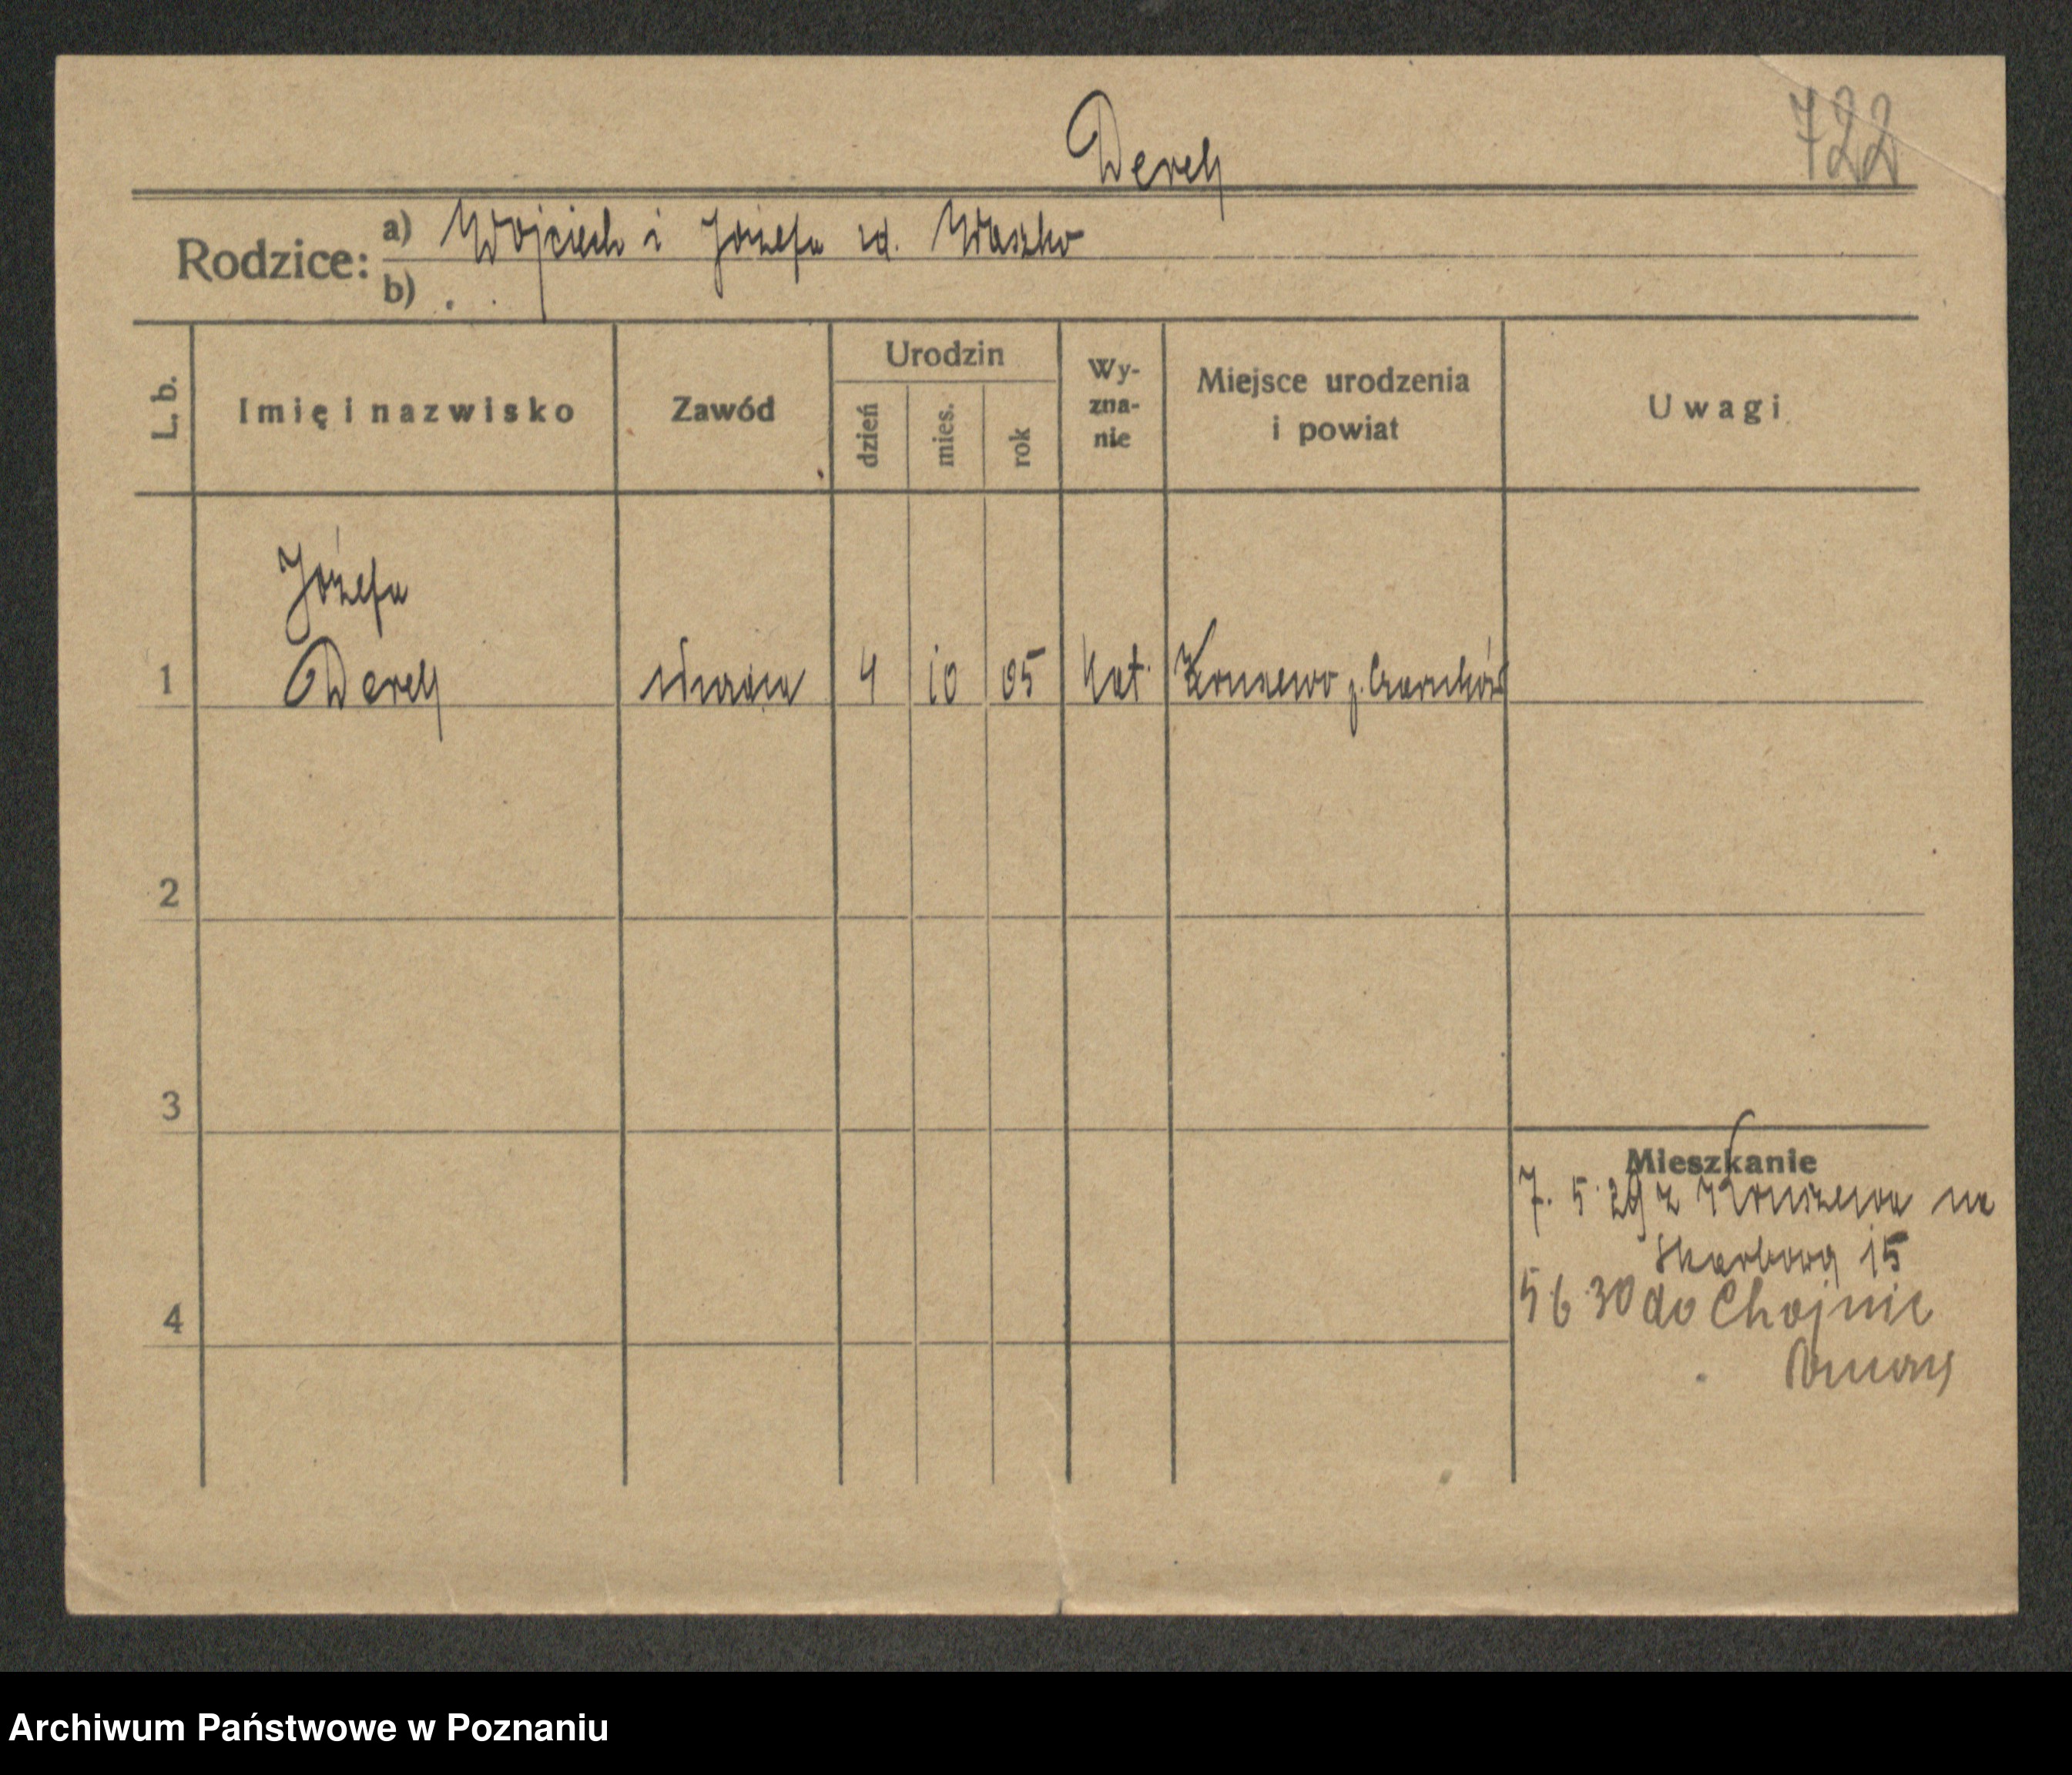 Derch
722
Rodzice: a) Wojciech i Józefa zd. Waszko
b)
L. b.
Imię i nazwisko
Zawód
Urodzin
dzień
mies.
rok
Wy-
zna-
nie
Miejsce urodzenia
i powiat
Uwagi
Józefa
1 Derch 4 10 05 kat. p. Czarnków
2
3
Mieszkanie
7. 5. 29 z Kruszewa na
Skarbową 15
4
5 6 30 do Chojnic
Archiwum Państwowe w Poznaniu